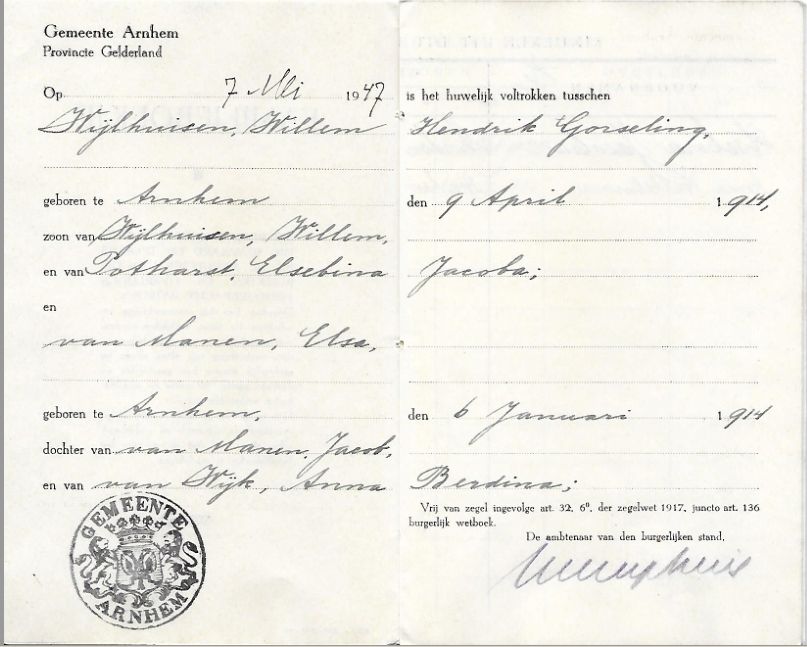 Gemeente Arnhem
Provincie Gelderland
Op 7 Mei 1947 is het huwelijk voltrokken tusschen
Wijlhuisen, Willem Hendrik Gorseling,
geboren te Arnhem den 9 April 1914,
zoon van Wijlhuisen, Willem,
en van Potharst, Elsebina Jacoba;
en
van Manen, Elsa,
geboren te Arnhem, den 6 Januari 1914
dochter van van Manen, Jacob,
en van van Wijk, Anna Berdina;
Vrij van zegel ingevolge art. 32, 6º, der zegelwet 1917, juncto art. 136
burgerlijk wetboek.
De ambtenaar van den burgerlijken stand,
GEMEENTE
ARNHEM